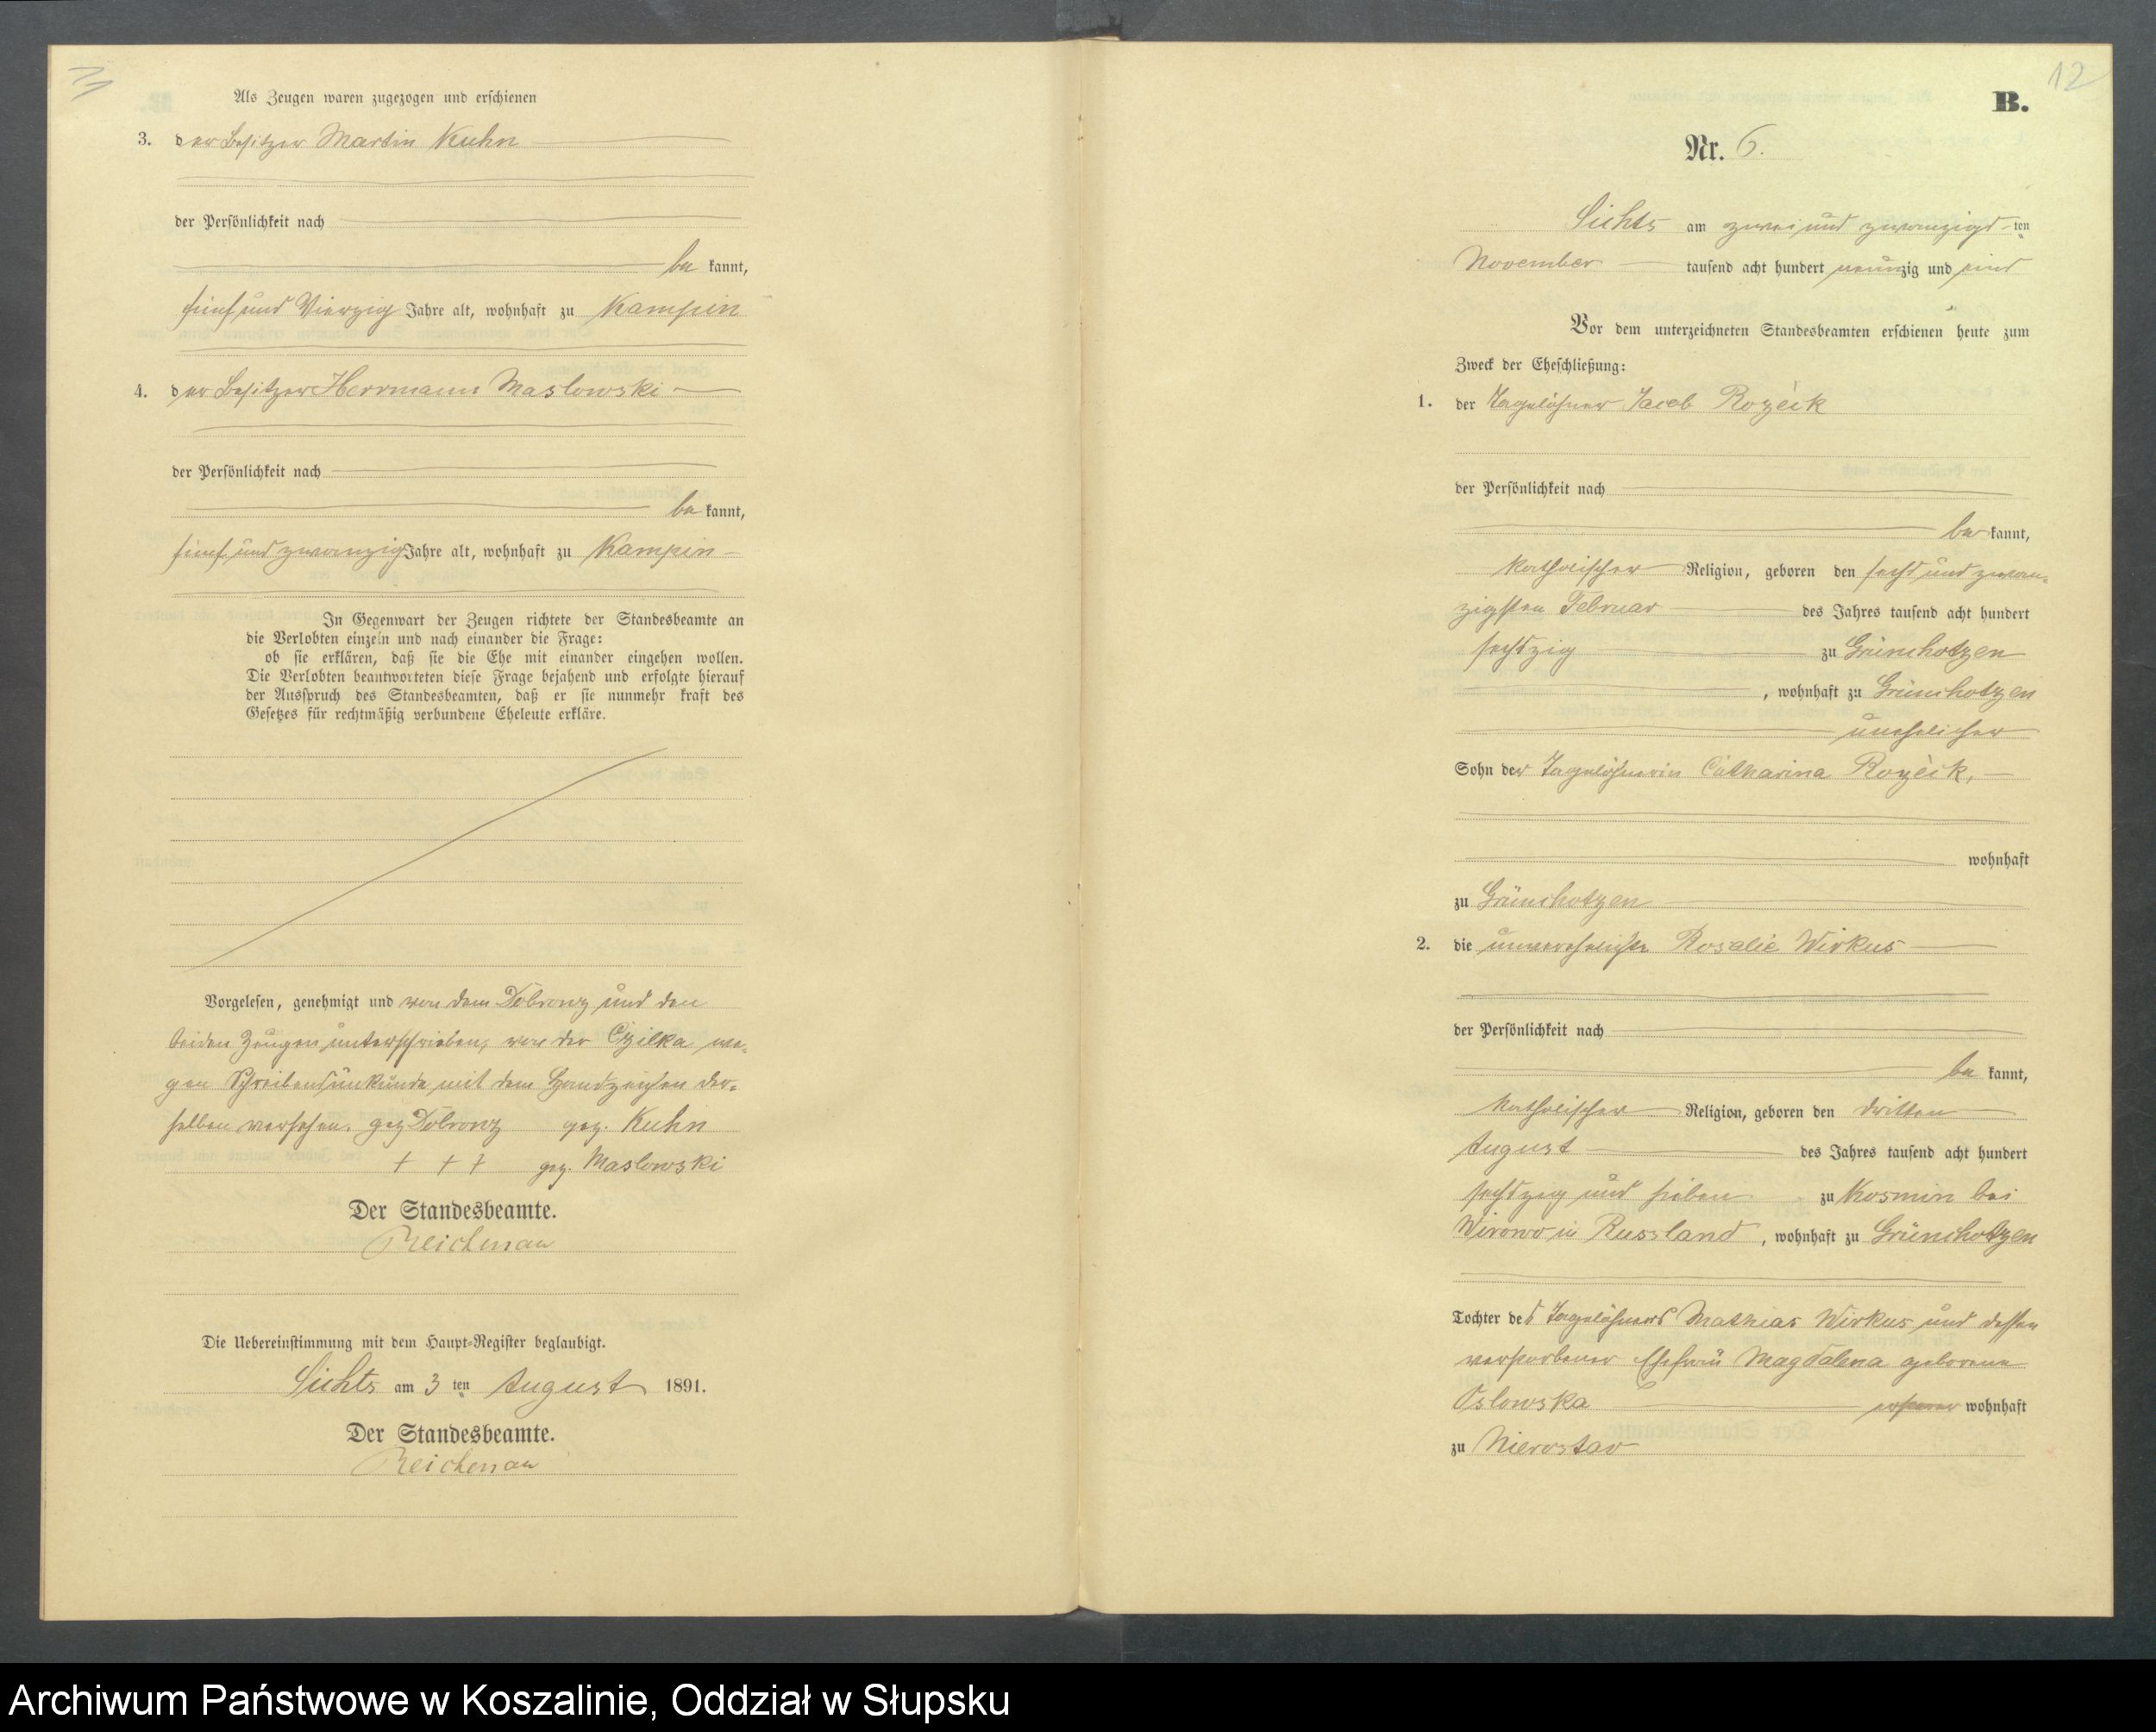 Als Zeugen waren zugezogen und erschienen
3. der Besitzer Martin Kuhn
der Persönlichkeit nach
be kannt,
fünf und Vierzig Jahre alt, wohnhaft zu Kampin
4. der Besitzer Herrmann Maslowski
der Persönlichkeit nach
be kannt,
fünf und zwanzig Jahre alt, wohnhaft zu Kampin
In Gegenwart der Zeugen richtete der Standesbeamte an
die Verlobten einzeln und nach einander die Frage:
ob sie erklären, daß sie die Ehe mit einander eingehen wollen.
Die Verlobten beantworteten diese Frage bejahend und erfolgte hierauf
der Ausspruch des Standesbeamten, daß er sie nunmehr kraft des
Gesetzes für rechtmäßig verbundene Eheleute erkläre.
Vorgelesen, genehmigt und von dem Dobronz und den
beiden Zeugen unterschrieben, von der Czilka we-
gen Schreibensunkunde mit dem Handzeichen der-
selben versehen. gez Dobronz gez. Kuhn
+ + + gez. Maslowski
Der Standesbeamte.
Reichenau
Die Uebereinstimmung mit dem Haupt-Register beglaubigt.
Lichts am 3 ten August 1891.
Der Standesbeamte.
Reichenau
12
B.
Nr. 6.
Lichts am zwei und zwanzigs ten
November tausend acht hundert neunzig und eins
Vor dem unterzeichneten Standesbeamten erschienen heute zum
Zweck der Eheschließung:
1. der Tagelöhner Jacob Rozeik
der Persönlichkeit nach
be kannt,
katholischer Religion, geboren den sechs und zwan-
zigsten Februar des Jahres tausend acht hundert
sechszig zu Grünchotzen
, wohnhaft zu Grünchotzen
unehelicher
Sohn der Tagelöhnerin Catharina Rozeik,
wohnhaft
zu Grünchotzen
2. die unverehelichte Rosalie Wirkus
der Persönlichkeit nach
be kannt,
katholischer Religion, geboren den dritten
August des Jahres tausend acht hundert
sechszig und sieben zu Kosmin bei
Wirowo in Russland, wohnhaft zu Grünchotzen
Tochter des Tagelöhners Mathias Wirkus und dessen
verstorbener Ehefrau Magdalena geborene
Oslowska wohnhaft
zu Nierostaw
Archiwum Państwowe w Koszalinie, Oddział w Słupsku